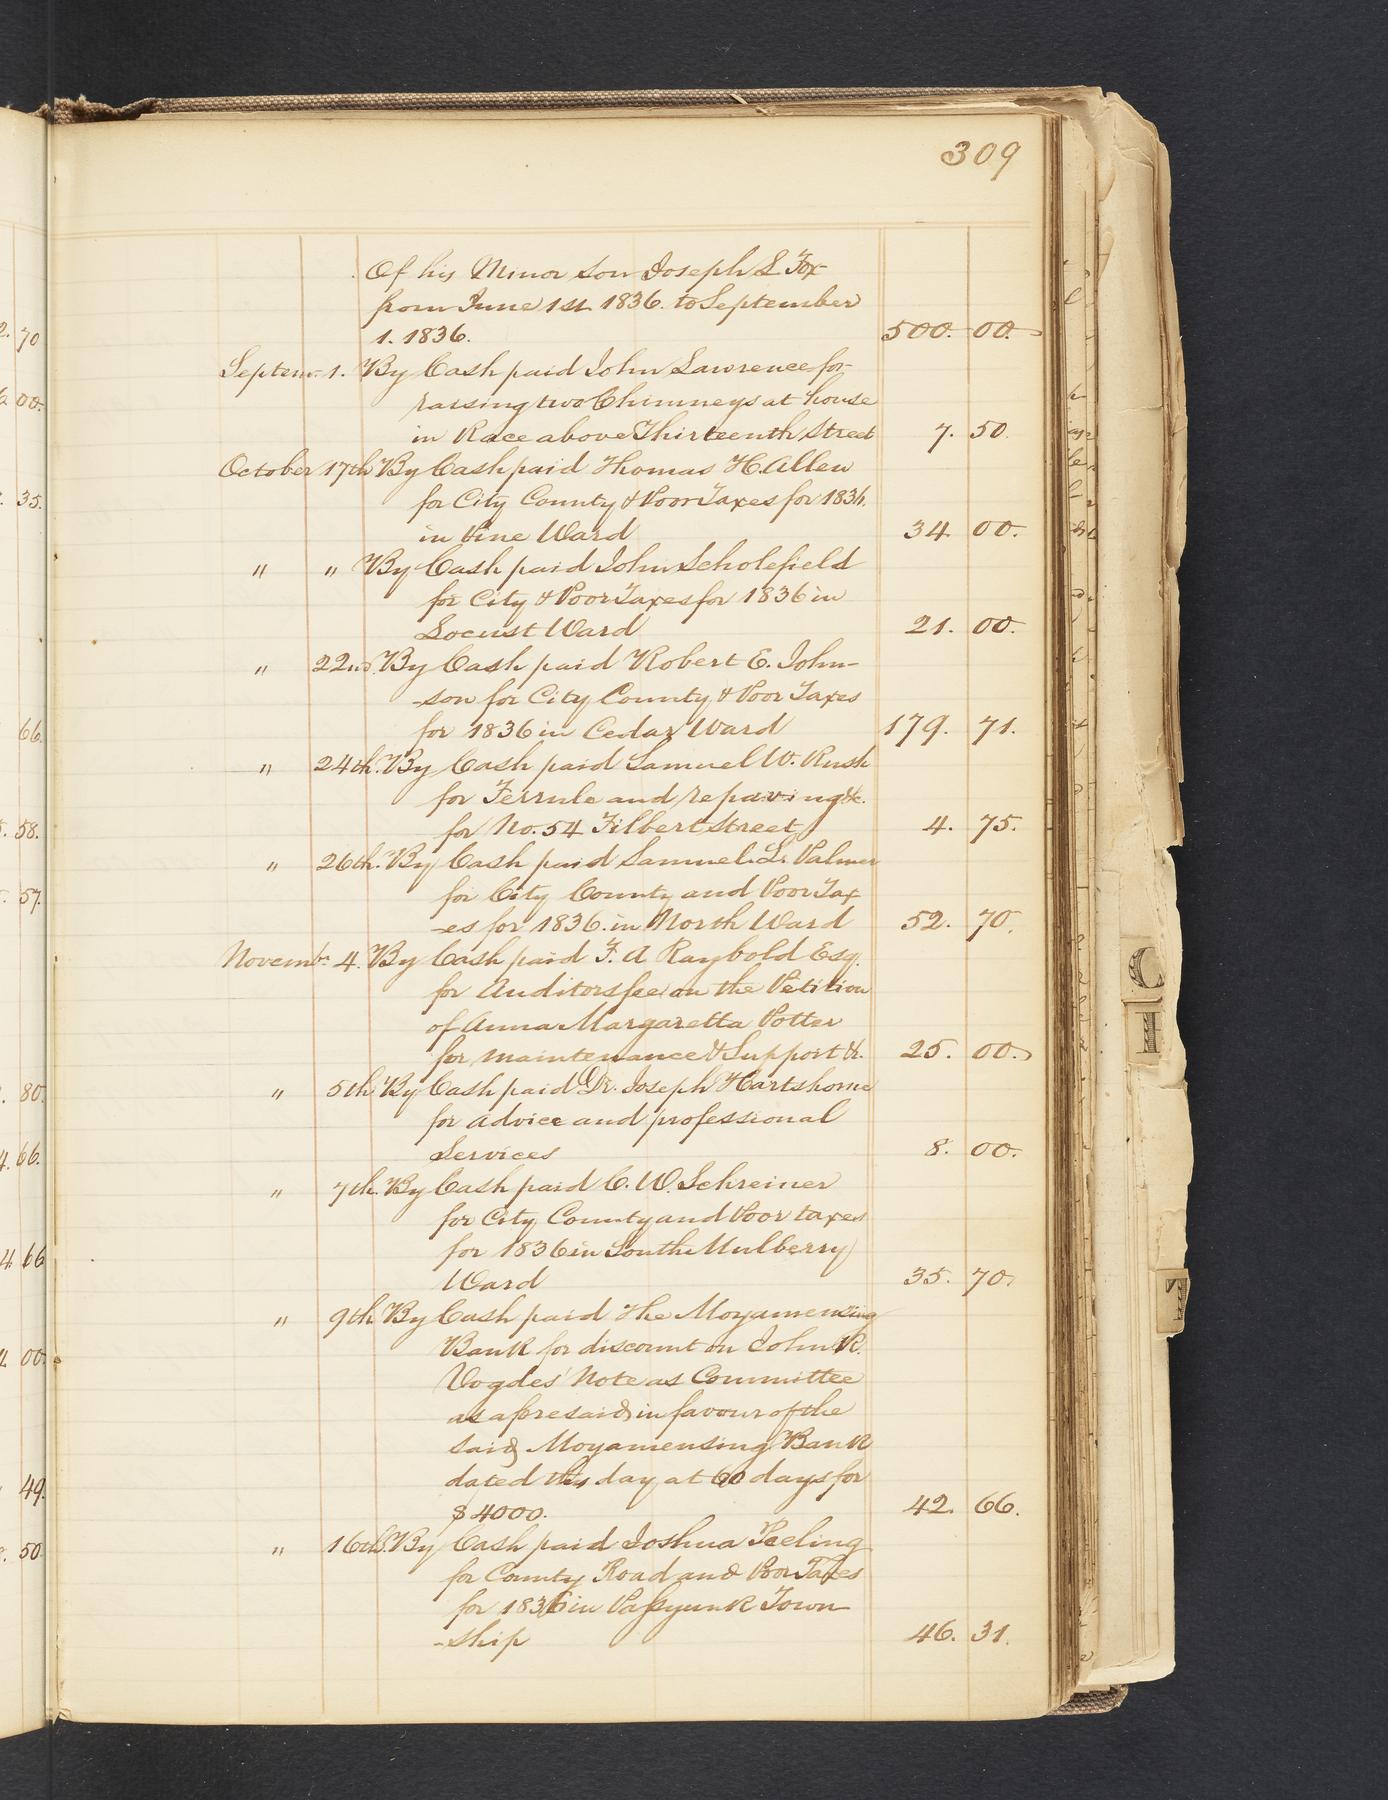 309
Of his Minor son Joseph S Fox
from June 1st 1836. to September
1. 1836. 500. 00.
Septem. 1. By Cash paid John Lawrence for
raising two Chimneys at house
in Race above Thirteenth Street 7. 50
October 17th By Cash paid Thomas H. Allen
for City County & Poor Taxes for 1836.
in Pine Ward 34. 00.
" " By Cash paid John Scholefield
for City & Poor Taxes for 1836 in
Locust Ward 21. 00.
" 22nd. By Cash paid Robert E. John-
-son for City County & Poor Taxes
for 1836 in Cedar Ward 179. 71.
" 24th. By Cash paid Samuel W. Rush
for Ferrule and repaving &c.
for No. 54 Filbert Street 4. 75.
" 26th. By Cash paid Samuel L. Palmer
for City County and Poor Tax
-es for 1836. in North Ward 52. 70.
Novembr. 4. By Cash paid F. A Raybold Esq.
for Auditors fee on the Petition
of Anna Margaretta Potter
for maintenance & Support &c. 25. 00.
" 5th By Cash paid Dr. Joseph Hartshorne
for advice and professional
Services 8. 00.
" 7th. By Cash paid C. W. Schreiner
for City County and Poor taxes
for 1836 in South Mulberry
Ward 35. 70.
" 9th By Cash paid the Moyamensing
Bank for discount on John R.
Vogdes' Note as Committee
as aforesaid in favour of the
said Moyamensing Bank
dated this day at 60 days for
$4000. 42. 66.
" 16th. By Cash paid Joshua Peeling
for County Road and Poor Taxes
for 1836 in Passyunk Town
-ship 46. 31.